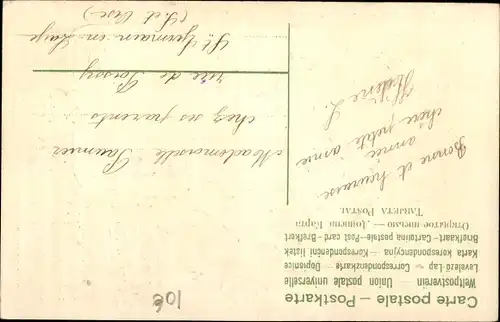 Carte postale – Postkarte
Weltpostverein – Union postale universelle
Levelező-Lap – Correspondenzkarte – Dopisnice
Karta korespondencyjna – Korespondenční listek
Briefkaart – Cartolina postale – Post card – Brefkort
Открытое письмо –
TARJETA POSTAL
Bonne et heureuse
année
chère petite amie
Hélène L.
Mademoiselle Saumier
chez ses parents
rue de Poissy
St Germain en Laye
(S. et Oise)
10€